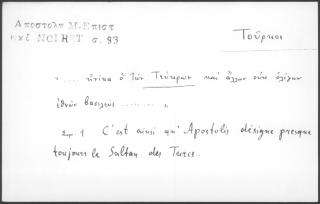 Αποστολη Μ. Επιστ
εκδ NOIRET σ. 83
Τοῦρκοι
".... ἡνίκα ὁ τῶν Τεύκρων καὶ ἄλλων οὐκ ὀλίγων
ἐθνῶν βασιλεὺς ........ "
Σημ. 1 C'est ainsi qu'Apostolis désigne presque
toujours le Sultan des Turcs.